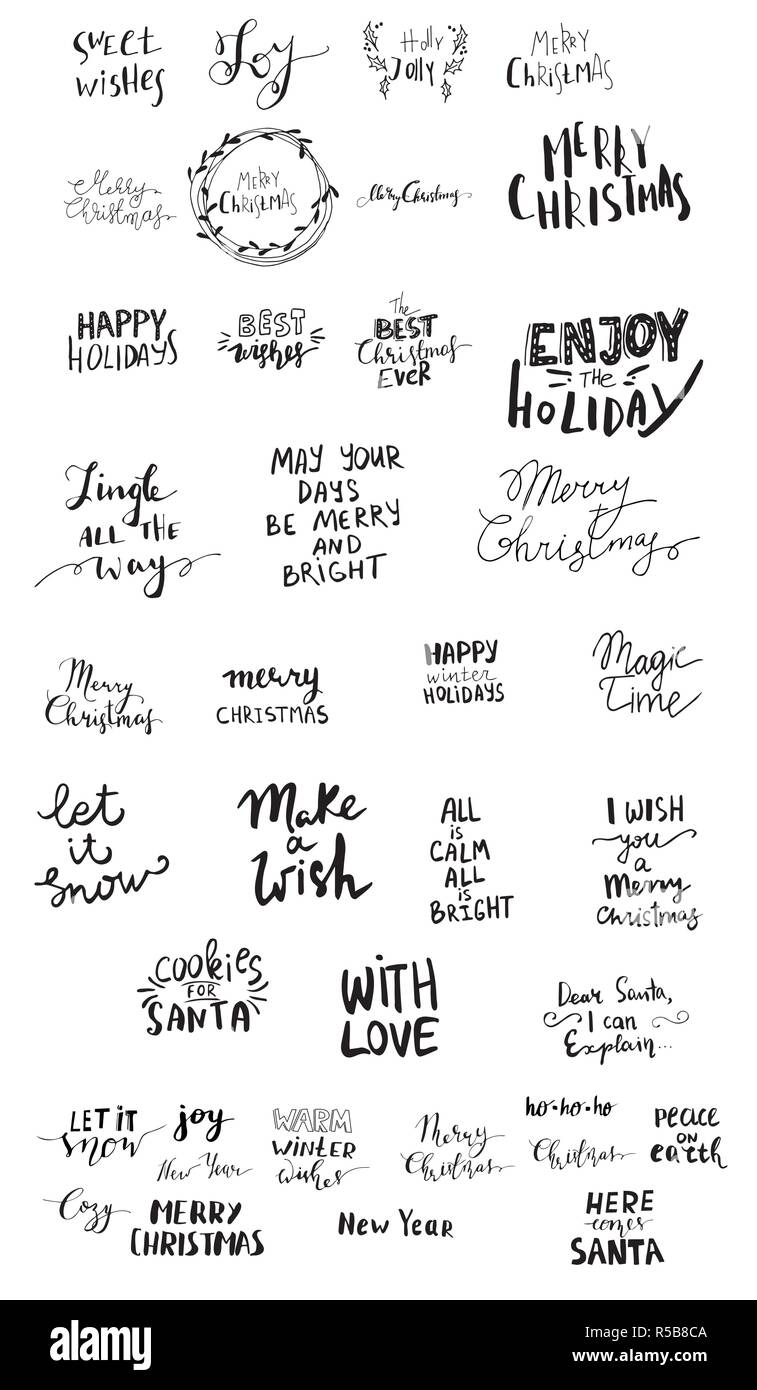 Sweet
wishes
Joy
Holly
Jolly
MERRY
ChRiStMAS
Merry
Christmas
MERRY
ChRiStMAS
Merry Christmas
MERRY
CHRISTMAS
HAPPY
HOLIDAYS
BEST
wishes
The
BEST
Christmas
EVER
ENJOY
THE
HOLIDAY
Jingle
ALL THE
way
MAY YOUR
DAYS
BE MERRY
AND
BRIGHT
Merry
Christmas
Merry
Christmas
merry
CHRISTMAS
HAPPY
winter
HOLIDAYS
Magic
Time
let
it
snow
Make
a
Wish
ALL
is
CALM
ALL
is
BRIGHT
I WISH
you
a
Merry
Christmas
Cookies
FOR
SANTA
WITH
LOVE
Dear Santa,
I can
Explain...
LET IT
snow
joy
New Year
WARM
WINTER
wishes
Merry
Christmas
ho·ho·ho
Christmas
peace
ON
earth
Cozy
MERRY
CHRISTMAS
New Year
HERE
comes
SANTA
alamy
Image ID: R5B8CA
www.alamy.com